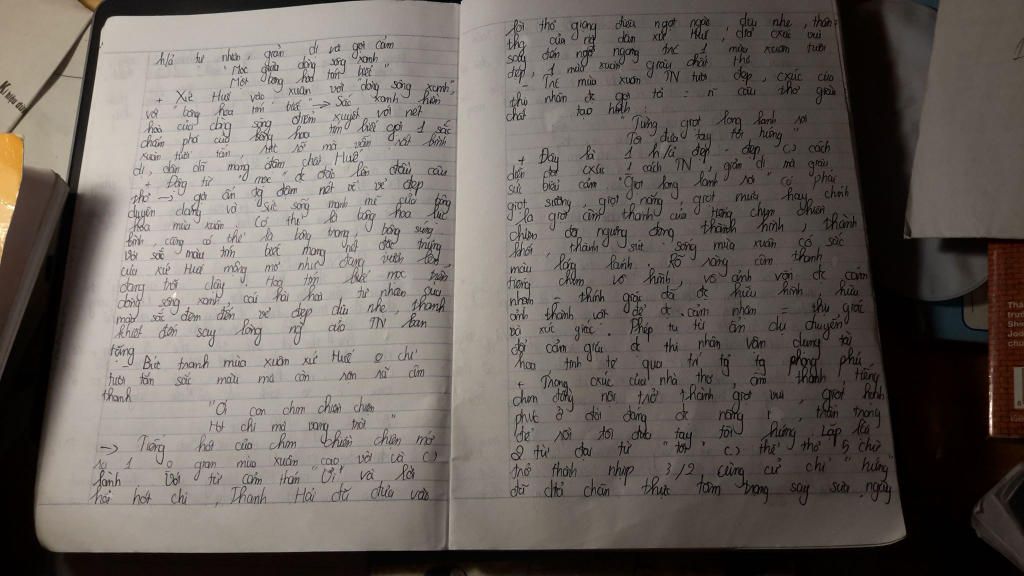 h/á tự nhiên, giản dị và gợi cảm
"Mọc giữa dòng sông xanh
Một bông hoa tím biếc"
+ Xứ Huế vào xuân với dòng sông xanh,
với "bông hoa tím biếc" → Sắc xanh hiền
hoà của dòng sông điểm xuyết với nét
chấm phá của bông hoa tím biếc gợi 1 sắc
xuân tươi tắn, rực rỡ mà vẫn rất bình
dị, dân dã mang đậm chất Huế
+ Động từ "mọc" đc đảo lên đầu câu
thơ → gợi ấn tg đậm nét về vẻ đẹp
duyên dáng và sức sống mạnh mẽ của bông
hoa mùa xuân. Có thể là bông hoa lục
bình, cũng có thể là bông trang, bông súng
với sắc màu tím biếc mang nét đặc trưng
của xứ Huế mộng mơ như đang vươn lên,
đang trỗi dậy. Hoa tím biếc mọc trên
dòng sông xanh, cái hài hoà tự nhiên của
màu sắc đem đến vẻ đẹp dịu nhẹ, thanh
khiết đến say lòng ng của TN ban
tặng
- Bức tranh mùa xuân xứ Huế o chỉ
tươi tắn sắc màu mà còn rộn rã âm
thanh
"Ơi con chim chiền chiện
Hót chi mà vang trời"
→ Tiếng hót của chim chiền chiện mở
ra 1 o gian mùa xuân cao vời và
lành. Với từ cảm thán "Ơi" và lời
hỏi hót chi, Thanh Hải đã đưa vào
lời thơ giọng điệu ngọt ngào, dịu nhẹ, thân
thg của ng dân xứ Huế; đó cxúc vui
say đến ngỡ ngàng trc 1 mùa xuân tươi
đẹp, 1 mùa xuân giàu chất thơ
- Trc mùa xuân TN tươi đẹp, cxúc của
thi nhân đc gợi tả = n câu thơ giàu
chất tạo hình:
"Từng giọt long lanh rơi
Tôi đưa tay tôi hứng"
+ Đây là 1 h/á đẹp, đẹp cách
diễn đạt cxúc, cách TN, giản dị mà giàu
sức biểu cảm. "Giọt long lanh rơi" có phải
giọt sương, giọt nắng, giọt mưa hay chính
là giọt âm thanh của tiếng chim chiền
chiện đã ngưng đọng thành hình, thành
khối, thành sức sống mùa xuân có sắc
màu lóng lánh. Rõ ràng âm thanh
tiếng chim vô hình, vô ảnh vốn đc cảm
nhận = thính giác đã đc hữu hình hữu
ảnh thành vật để đc cảm nhận = thị giác
và xúc giác. Phép tu từ ẩn dụ chuyển
đổi cảm giác đc thi nhân vận dụng tài
hoa, tinh tế qua trí tg tg phong phú
+ Trong cxúc của nhà thơ, âm thanh tiếng
chim đang nói trở thành giọt vui, giọt hạnh
phúc ở đời đang đc nâng, trân trọng
để rồi tôi đưa tay tôi hứng. Lặp lại
2 từ đại từ "tôi" thể thơ 5 chữ
trở thành nhịp 3/2, cùng cử chỉ "hứng"
đã diễn chân thực tâm trạng say sưa, ngây